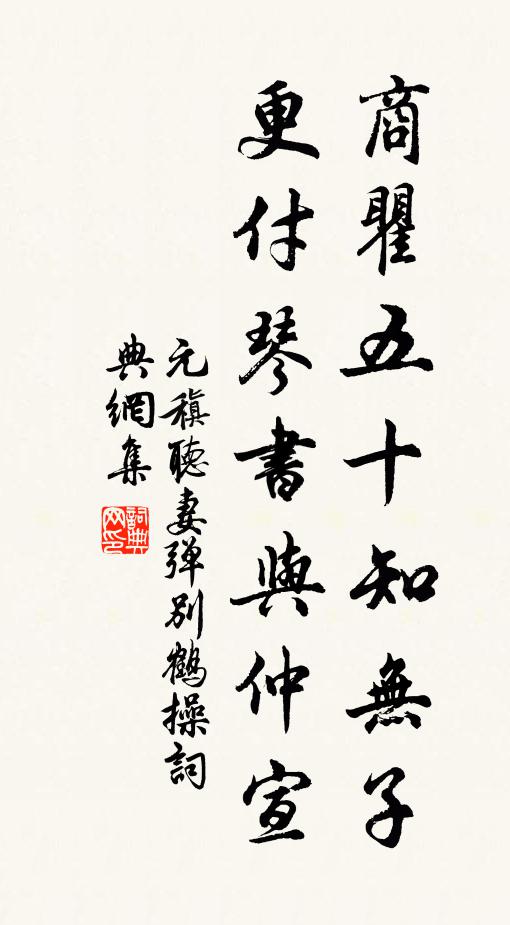 商瞿五十知無子
更付琴書與仲宣
元稹聽妻弹別鶴操詞
典網集
詞典
网印